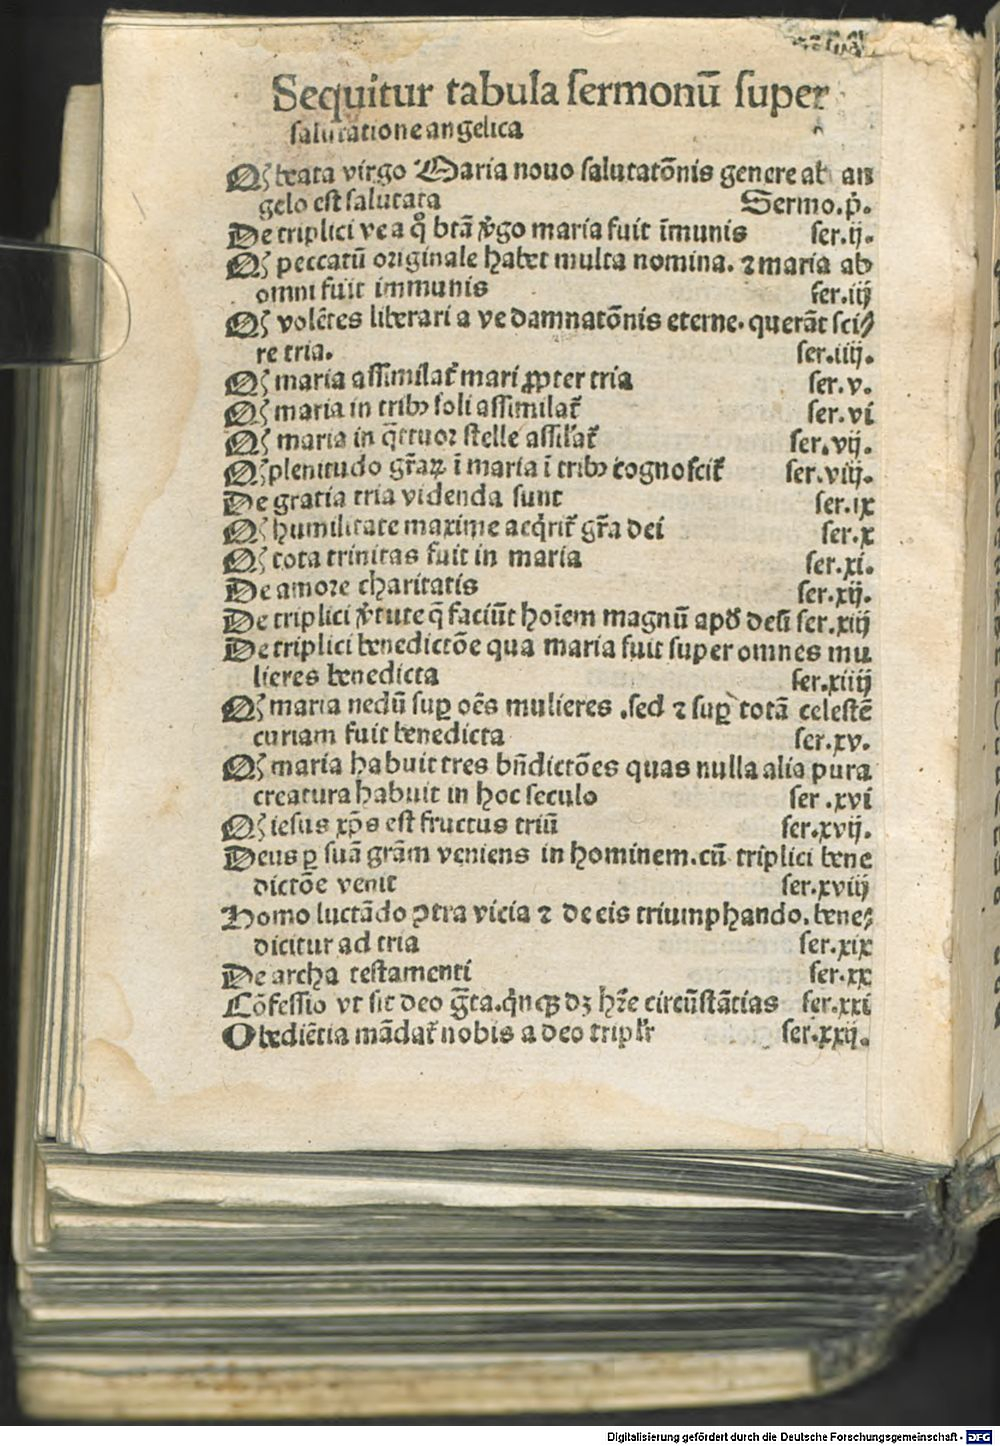 Sequitur tabula sermonū super
salutatione angelica
Qꝫ beata virgo Maria nouo salutatōnis genere ab an
gelo est salutata Sermo.p̄.
De triplici ve a qͦ btā v̓go maria fuit īmunis ser.ij.
Qꝫ peccatū originale habet multa nomina. ⁊ maria ab
omni fuit immunis ser.iij
Qꝫ volētes liberari a ve damnatōnis eterne. querāt sci⸗
re tria. ser.iiij.
Qꝫ maria assimilat̃ mari ꝓpter tria ser.v.
Qꝫ maria in tribꝰ soli assimilat̃ ser.vi
Qꝫ maria in q̄ttuor stelle assil̓at̃ ser.vij.
Qꝫ plenitudo gr̄aꝝ ī maria ī tribꝰ cognoscit̃ ser.viij.
De gratia tria videnda sunt ser.ix
Qꝫ humilitate maxime acq̓rit̃ gr̄a dei ser.x
Qꝫ tota trinitas fuit in maria ser.xi.
De amore charitatis ser.xij.
De triplici v̓tute q̄ faciūt hoīem magnū apd̓ deū ser.xiij
De triplici benedictōe qua maria fuit super omnes mu
lieres benedicta ser.xiiij
Qꝫ maria nedū suꝑ oēs mulieres .sed ⁊ suꝑ totā celestē
curiam fuit benedicta ser.xv.
Qꝫ maria habuit tres bn̄dictōes quas nulla alia pura
creatura habuit in hoc seculo ser .xvi
Qꝫ iesus xp̄s est fructus triū ser.xvij.
Deus ꝑ suā grām veniens in hominem.cū triplici bene
dictōe venit ser.xviij
Homo luctādo ꝯtra vicia ⁊ de eis triumphando. bene⸗
dicitur ad tria ser.xix
De archa testamenti ser.xx
Cōfessio vt sit deo ḡta.q̓nqꝫ dꝫ hr̄e circūstātias ser.xxi
Obediētia mādat̃ nobis a deo tripl̓r ser.xxij.
Digitalisierung gefördert durch die Deutsche Forschungsgemeinschaft - DFG